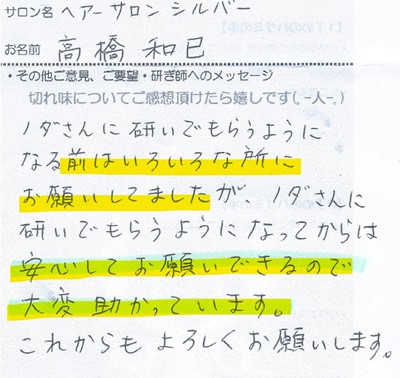 サロン名 ヘアーサロン シルバー
お名前 高橋 和巳
・その他ご意見、ご要望・研ぎ師へのメッセージ
切れ味についてご感想頂けたら嬉しです(_ -人-_)
ノダさんに研いでもらうように
なる前はいろいろな所に
お願いしてましたが、ノダさんに
研いでもらうようになってからは
安心してお願いできるので
大変助かっています。
これからもよろしくお願いします。